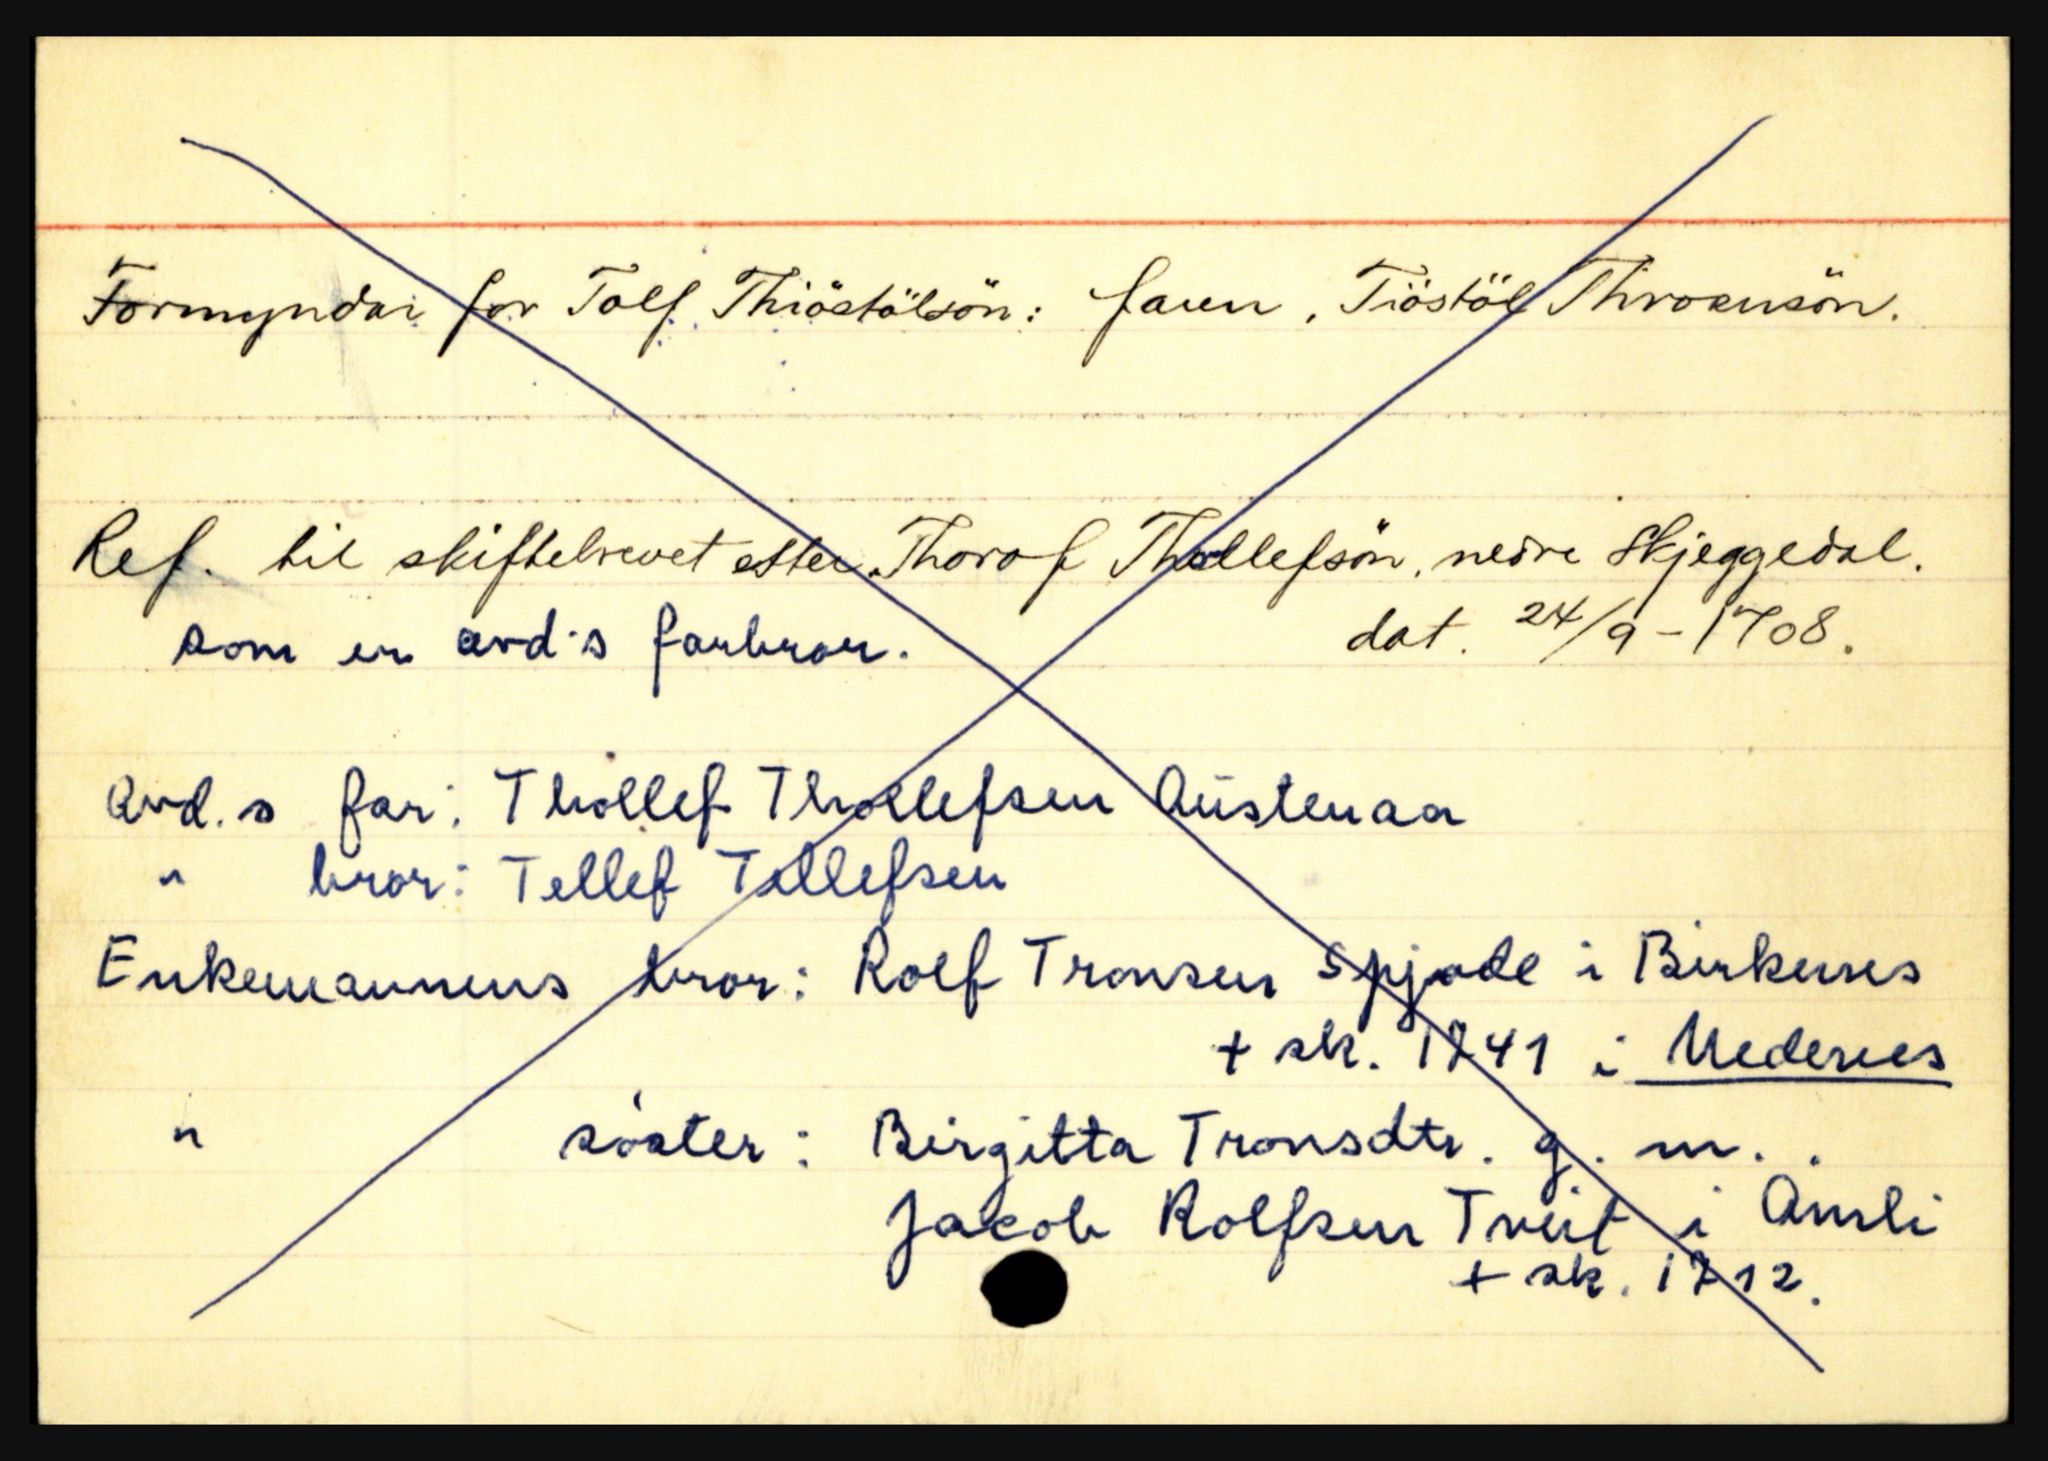 Formyndar for Tolf Thiöstölsön: faren, Tiöstöl Throensön.
Ref. til skiftebrevet etter Thorof Thollefsön, nedre Skjeggedal.
dat. 24/9 - 1708.
som er avd.s farbror.
Avd.s far: Thollef Thollefsen Austenaa
" bror: Tellef Tellefsen
Enkemannens bror: Rolf Tronsen Spjode i Birkenes
+ sk. 1741 i Nedenes
" söster: Birgitta Tronsdtr. g. m.
Jacob Rolfsen Tveit i Åmli
+ sk. 1712.